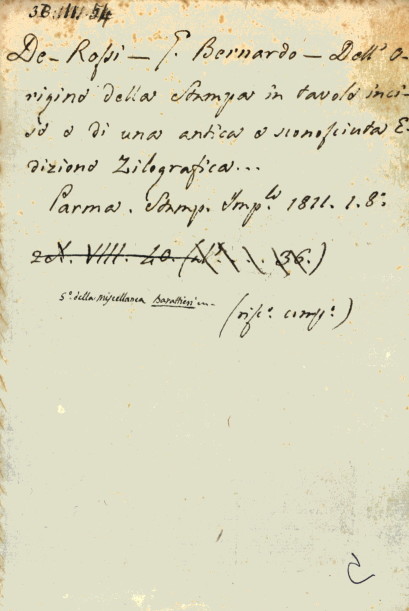 3B.III.54
De-Rossi - G. Bernardo - Dell' O-
rigine della Stampa in tavole inci-
se e di una antica e sconosciuta E-
dizione Zilografica...
Parma. Stamp. Imp.le 1811. 1. 8º.
VIII. 40. 36.)
5º della miscellanea Barattieri